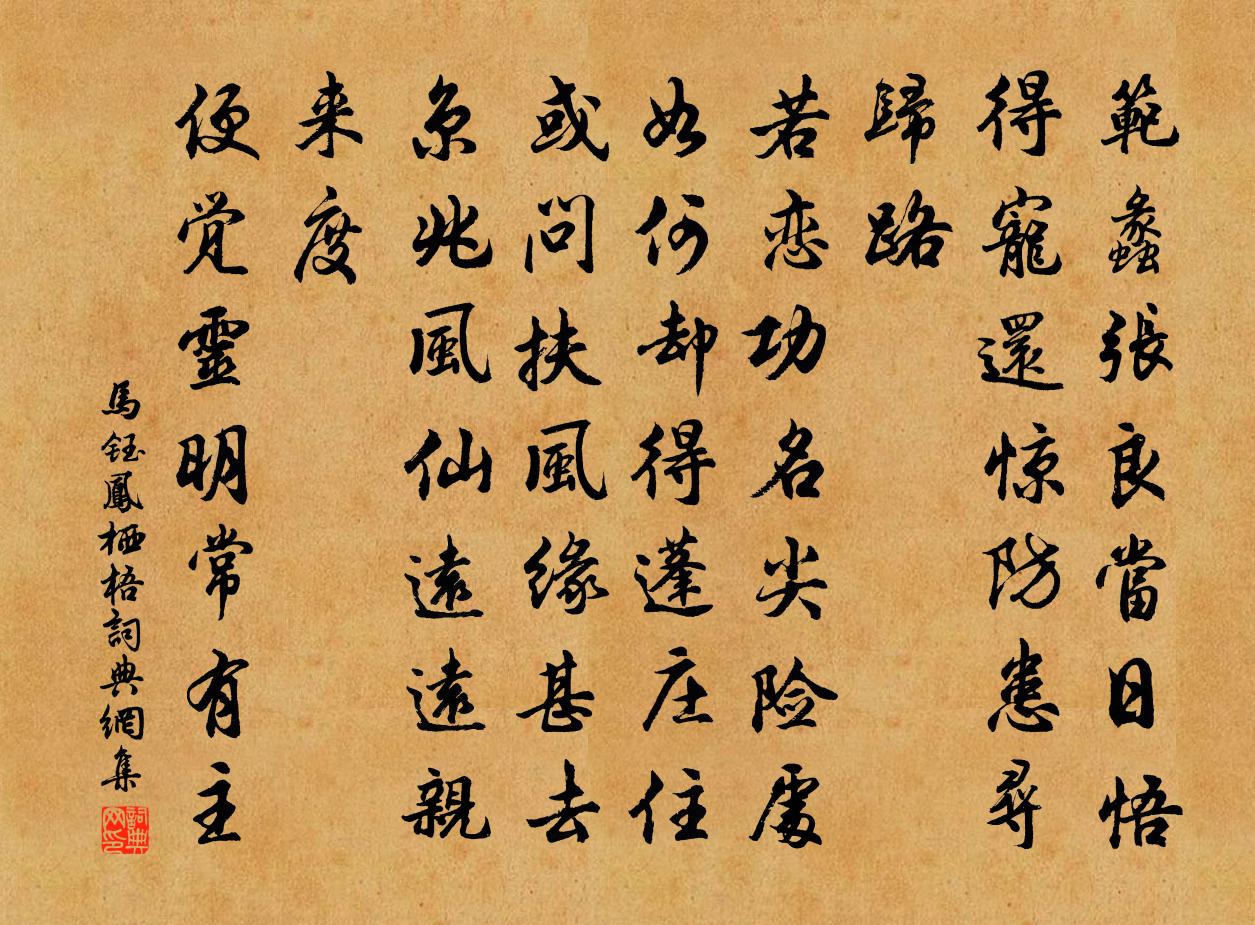 範蠡張良當日悟
得寵還惊防患尋
歸路
若恋功名尖险處
如何却得蓬庄住
或問扶風緣甚去
京兆風仙遠遠親
来度
便觉靈明常有主
馬鈺鳳栖梧詞典網集
詞典网印